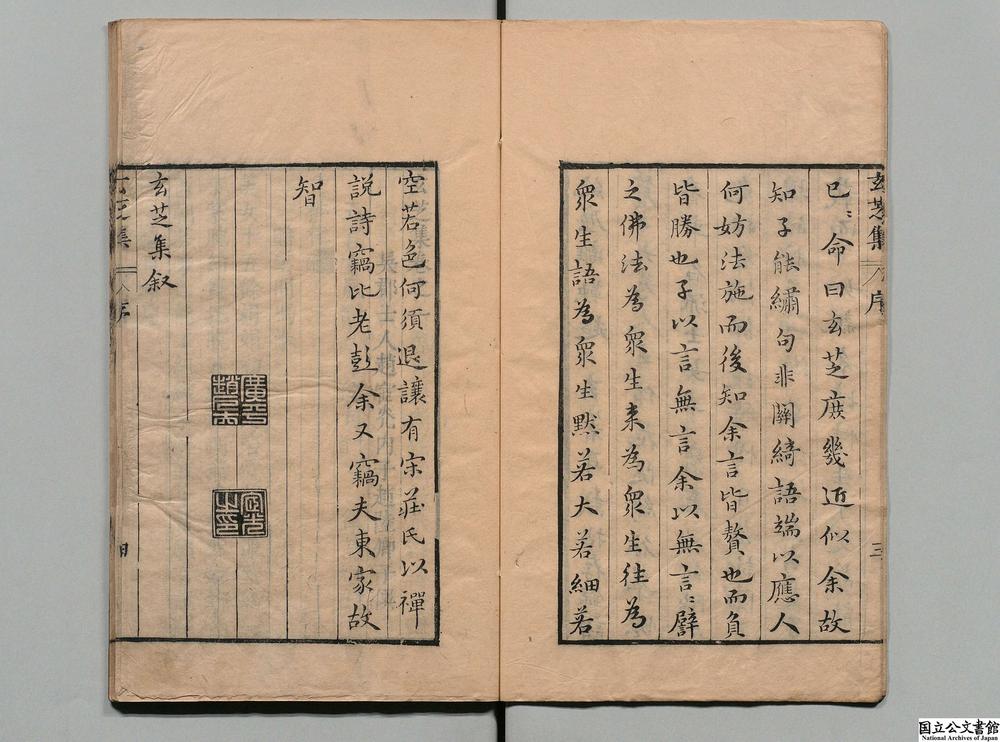 玄芝集 序 三
已〻命曰玄芝庻幾近似余故
知子能繡句非關綺語端以應人
何妨法施而後知余言皆贅也而負
皆勝也子以言無言余以無言〻譬
之佛法為眾生来為眾生徃為
眾生語為眾生黙若大若細若
空若色何須退讓有宋莊氏以禪
説詩竊比老彭余又竊夫東家故
智
廣平趙氏
宧光之印
玄芝集叙
玄芝集 序
国立公文書館
National Archives of Japan